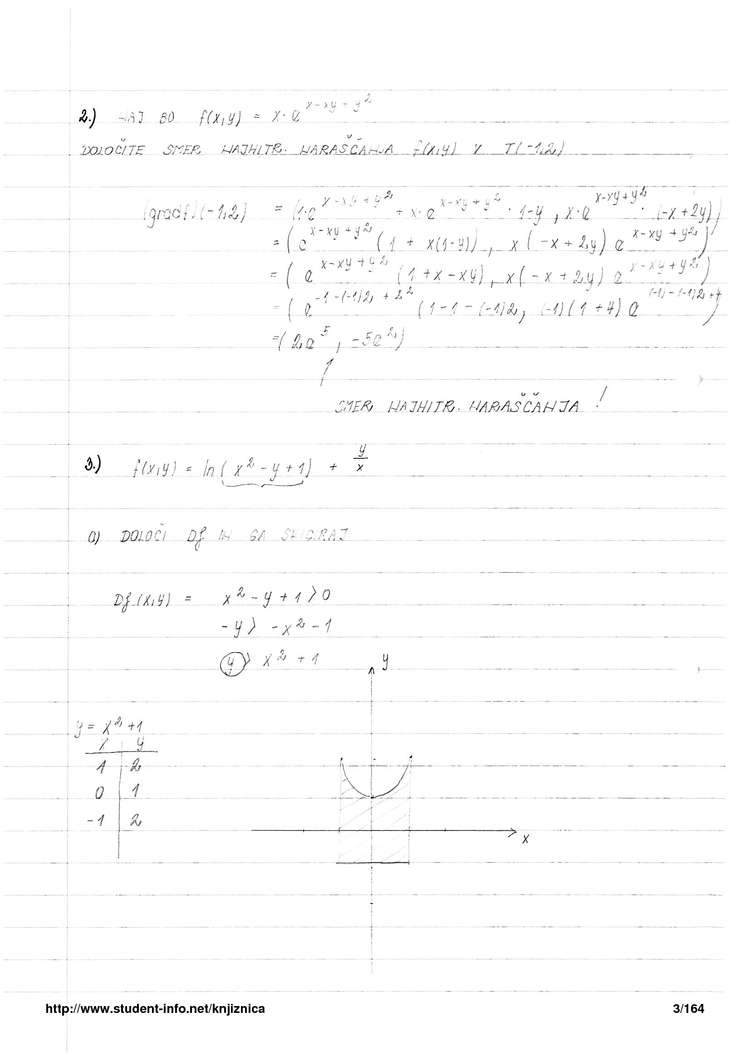 2.) NAJ BO f(x,y) = x·e^(x-xy+y²)
DOLOČITE SMER NAJHITR. NARAŠČANJA f(x,y) V T(-1,2)
(grad f)(-1,2) = (1·e^(x-xy+y²) + x·e^(x-xy+y²)·1-y, x·e^(x-xy+y²)·(-x+2y))
= (e^(x-xy+y²) (1 + x(1-y)), x(-x+2y) e^(x-xy+y²))
= (e^(x-xy+y²) (1+x-xy), x(-x+2y) e^(x-xy+y²))
= (e^(-1-(-1)2+2²) (1-1-(-1)2, (-1)(1+4) e^((-1)-(-1)2+4))
=(2e⁵, -5e²)
SMER NAJHITR. NARAŠČANJA !
3.) f(x,y) = ln(x²-y+1) + y/x
a) DOLOČI Df IN GA SKICIRAJ
Df(x,y) = x²-y+1>0
-y > -x²-1
y > x²+1
y
y = x²+1
x y
1 2
0 1
-1 2
x
http://www.student-info.net/knjiznica 3/164